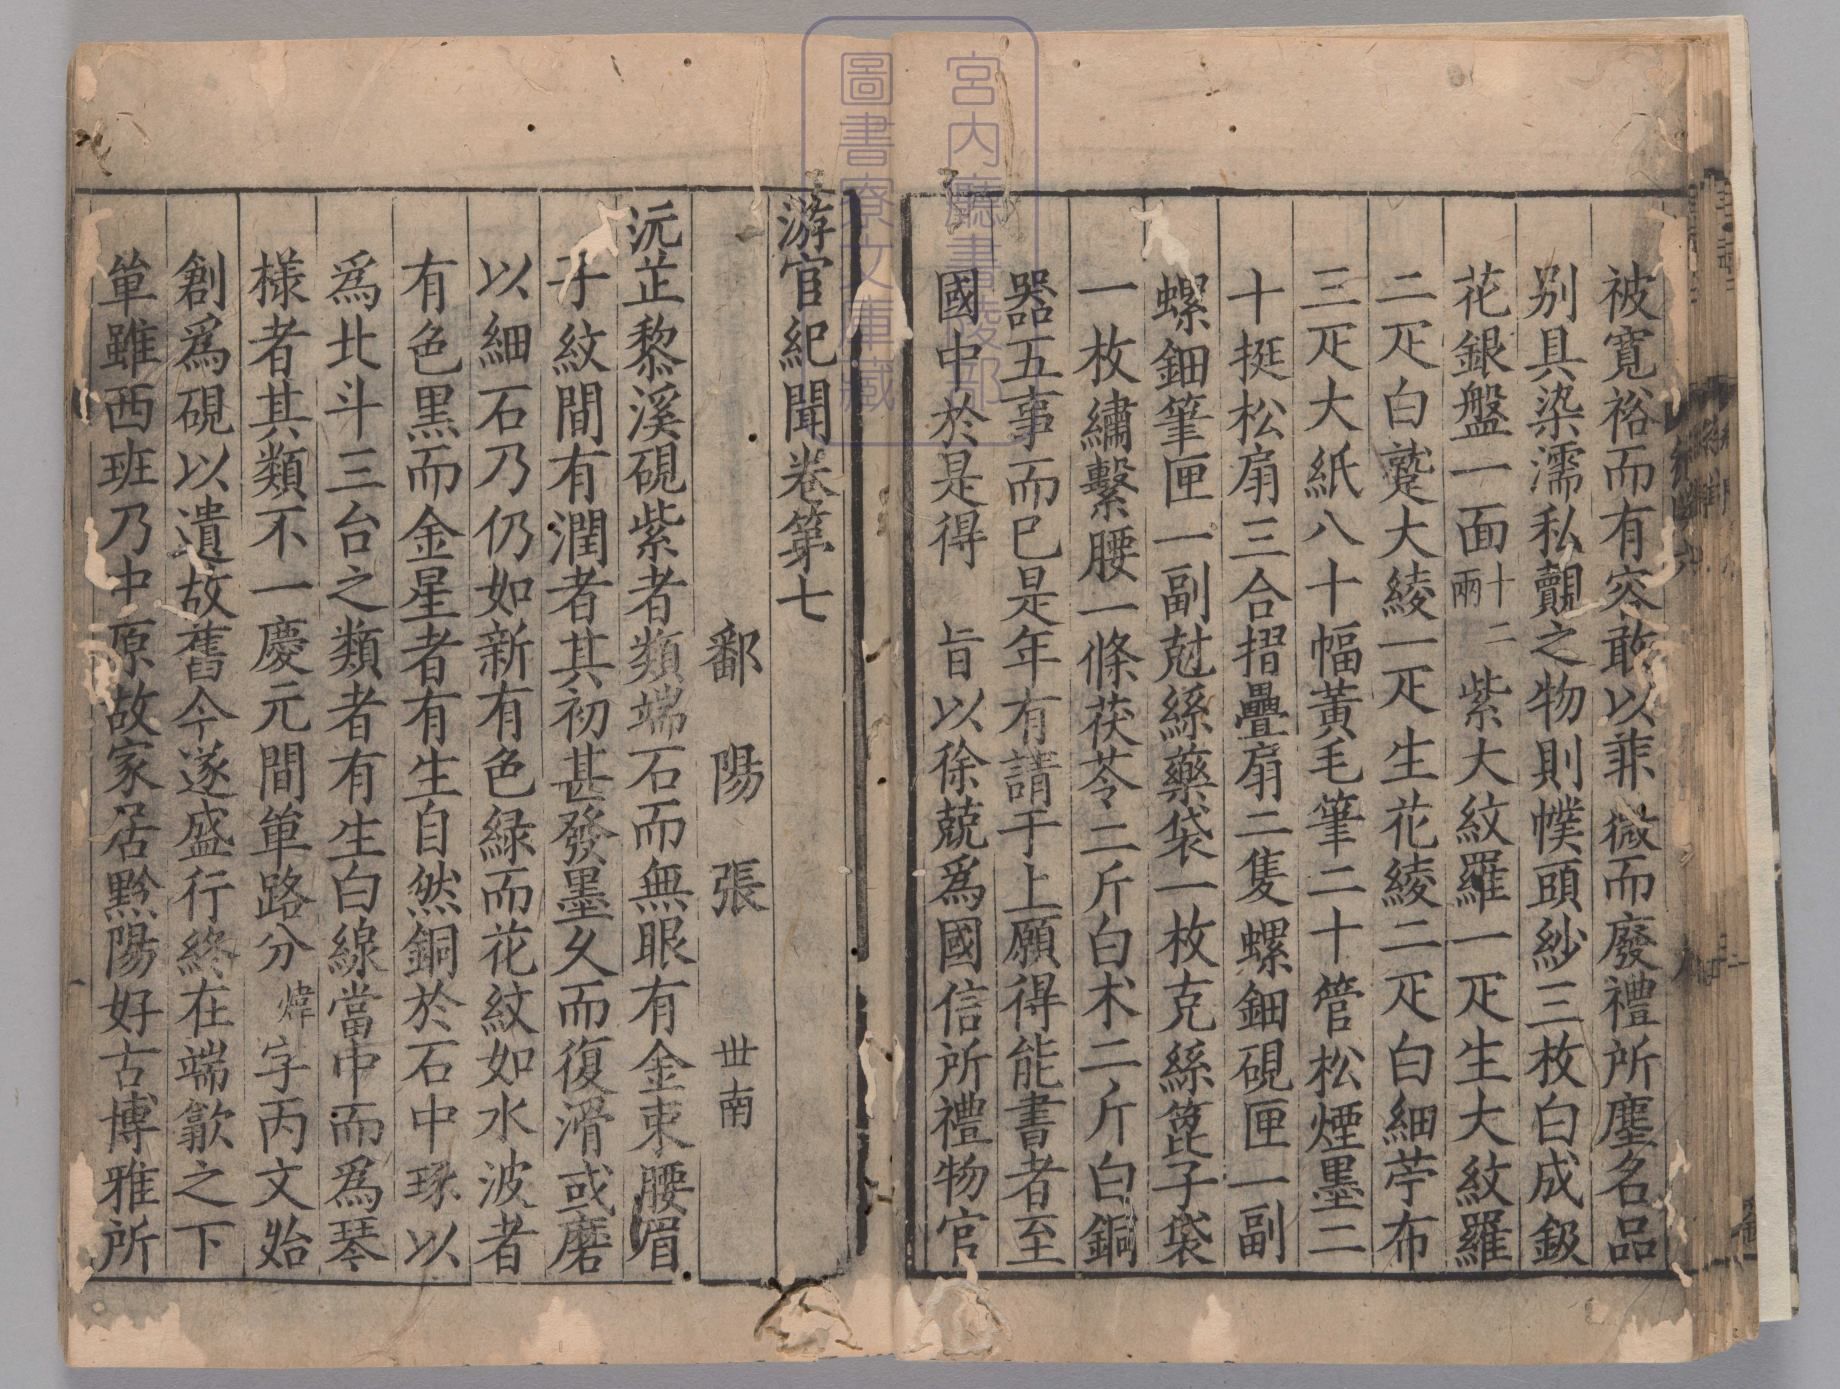 被寬裕而有容敢以菲薇而廢禮所塵名品
别具染濡私覿之物則幞頭紗三枚白成鈒
花銀盤一面十二兩紫大紋羅一疋生大紋羅
二疋白鷔大綾一疋生花綾二疋白細苧布
三疋大紙八十幅黃毛筆二十管松煙墨二
十挺松扇三合摺疊扇二隻螺鈿硯匣一副
螺鈿筆匣一副兢絲藥袋一枚克絲篦子袋
一枚繡繫腰一條茯苓二斤白朮二斤白銅
器五事而已是年有請于上願得能書者至
國中於是得 旨以徐兢爲國信所禮物官
游宦紀聞卷第七
鄱陽張世南
沅芷黎溪硯紫者類端石而無眼有金束腰眉
子紋間有潤者其初甚發墨久而復滑或磨
以細石乃仍如新有色緑而花紋如水波者
有色黑而金星者有生自然銅於石中琢以
爲北斗三台之類者有生白線當中而爲琴
樣者其類不一慶元間單路分煒字丙文始
創爲硯以遺故舊今遂盛行終在端歙之下
單雖西班乃中原故家居黔陽好古博雅所
宮内廳書陵部
圖書寮文庫藏